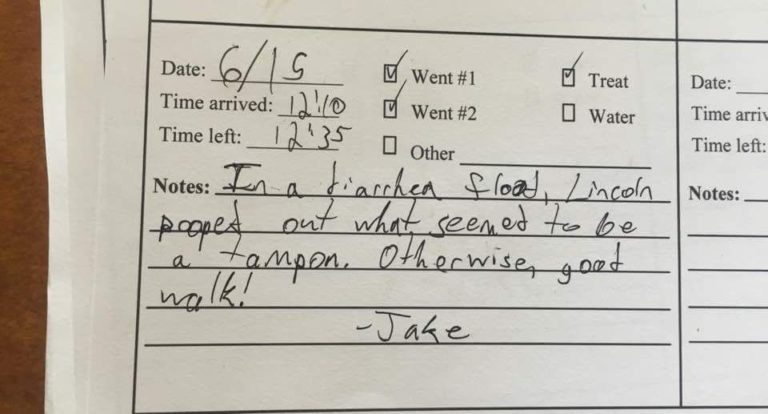 Date: 6/15 ☑ Went #1 ☑ Treat
Time arrived: 12:10 ☑ Went #2 ☐ Water
Time left: 12:35 ☐ Other
Notes: In a diarrhea flood, Lincoln
pooped out what seemed to be
a tampon. Otherwise, good
walk!
-Jake
Date:
Time arriv
Time left:
Notes: